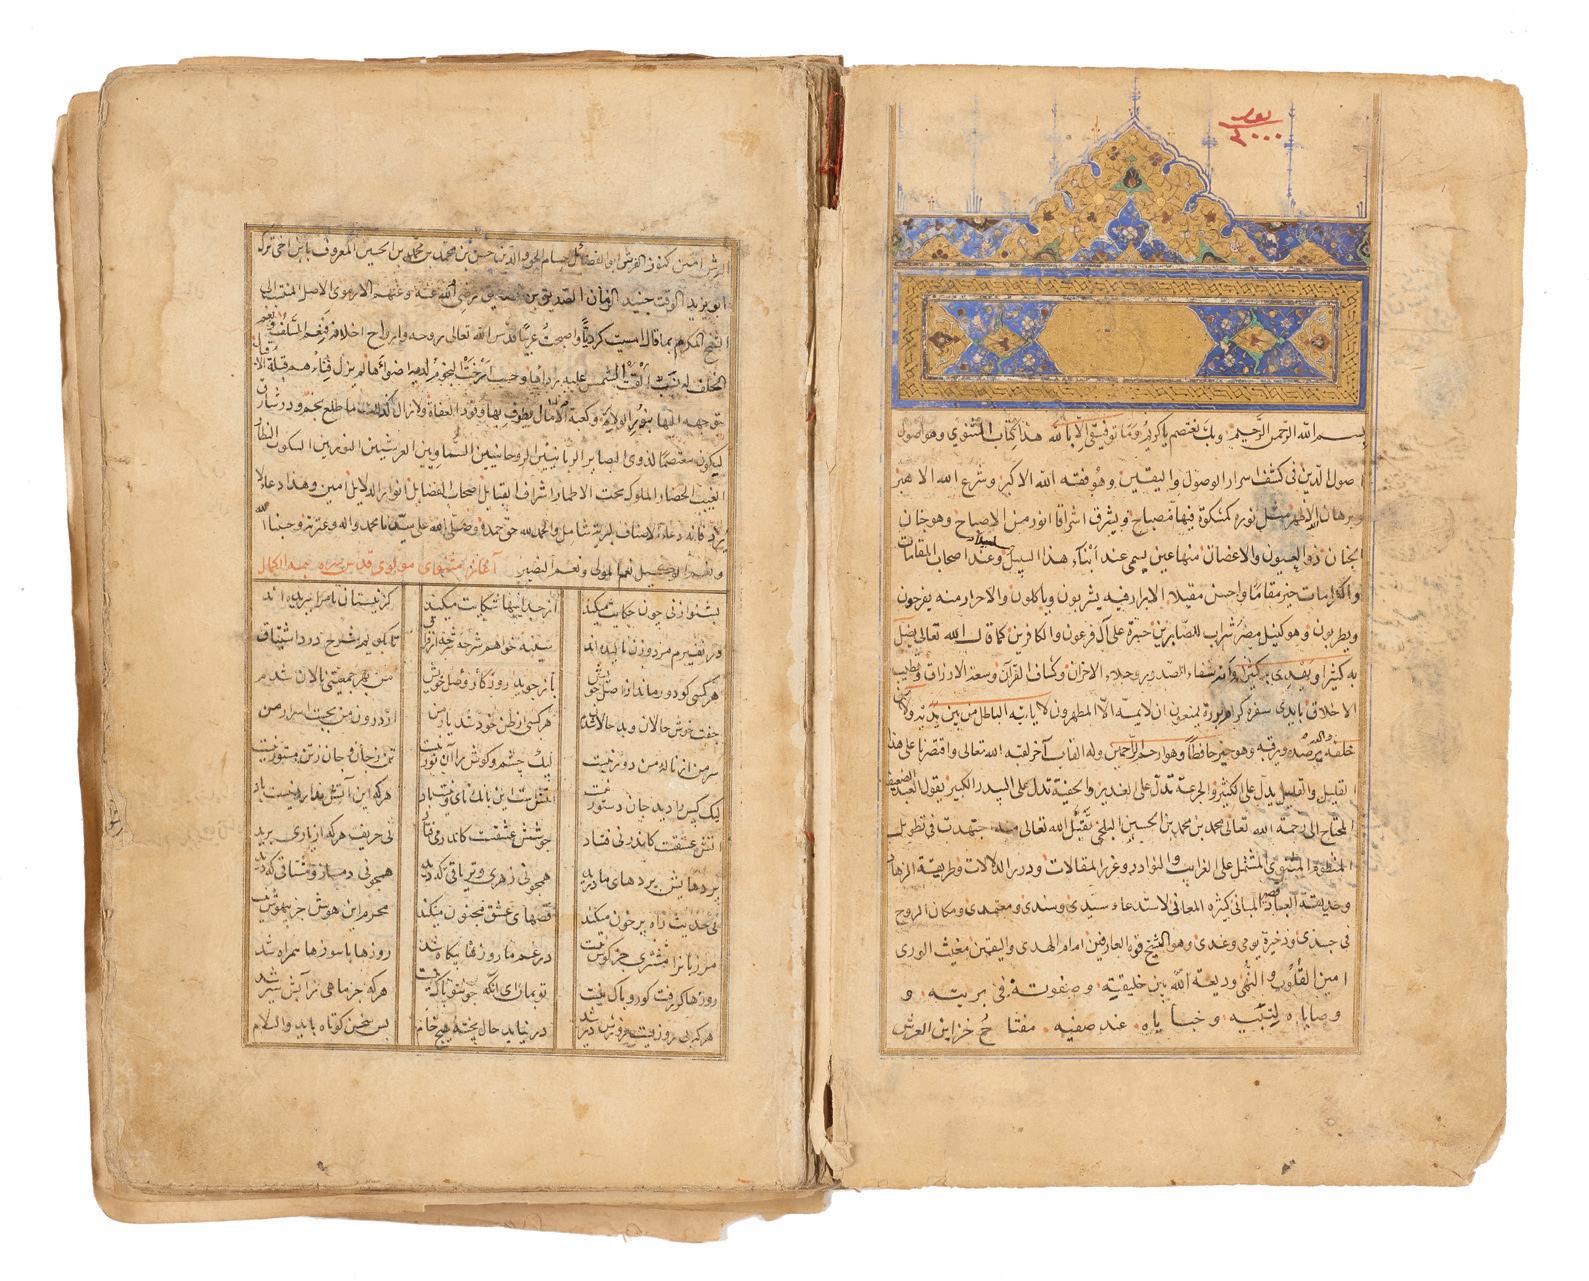 بسم الله الرحمن الرحیم وبك نعتصم یا كریم وما توفیقی الا بالله هذا كتاب المثنوی وهو اصول
اصول الدین فی كشف اسرار الوصول والیقین وهو فقه الله الاكبر وشرع الله الازهر
وبرهان الله الاظهر مثل نوره كمشكوة فیها مصباح ویشرق اشراقا انور من الاصباح وهو جنان
الجنان ذو العیون والاغصان منها عین یسمی عند ابناء هذا السبیل سلسبیلا وعند اصحاب المقامات
والكرامات خیر مقاما واحسن مقیلا الابرار فیه یشربون ویاكلون والاحرار منه یفرحون
ویطربون وهو كنیل مصر شراب للصابرین حسرة علی آل فرعون والكافرین كما قال الله تعالی یضل
به كثیرا ویهدی به كثیرا وانه شفاء الصدور وجلاء الاحزان وكشاف القرآن وسعة الارزاق وتطییب
الاخلاق بایدی سفرة كرام بررة یمنعون ان لا یمسه الا المطهرون لا یاتیه الباطل من بین یدیه ولا من
خلفه والله یرصده ویرقبه وهو خیر حافظا وهو ارحم الراحمین وله القاب آخر لقبه الله تعالی واقتصرنا علی هذا
القلیل والقلیل یدل علی الكثیر والجرعة تدل علی الغدیر والحفنة تدل علی البیدر الكبیر یقول العبد الضعیف
المحتاج الی رحمة الله تعالی محمد بن محمد بن الحسین البلخی تقبل الله تعالی منه اجتهدت فی تطویل
المنظوم المثنوی المشتمل علی الغرایب والنوادر وغرر المقالات ودرر الدلالات وطریقة الزهاد
وحدیقة العباد قصیرة المبانی كثیرة المعانی لاستدعاء سیدی وسندی ومعتمدی ومكان الروح
فی جسدی وذخیرة یومی وغدی وهو الشیخ قدوة العارفین امام الهدی والیقین مغیث الوری
امین القلوب والنهی ودیعة الله بین خلیقته وصفوته فی بریته و
وصایاه لنبیه وخبایاه عند صفیه مفتاح خزاین العرش
امین كنوز الفرش ابو الفضایل حسام الحق والدین حسن بن محمد بن محمد بن الحسین المعروف بابن اخی ترك
ابو یزید الوقت جنید الزمان الصدیق بن الصدیق رضی الله عنه وعنهم الارموی الاصل المنتسب الی
الشیخ المكرم بما قال امسیت كردیا واصبحت عربیا قدس الله تعالی روحه وارواح اخلافه فنعم السلف ونعم
الخلف له نسب القت الشمس علیه رداءها وحسب ارخت النجوم لدیه اضواءها لم یزل فناءهم قبلة الاقبال
یتوجه الیها بنو الولایة وكعبة الآمال یطوف بها وفود العفاة ولا زال كذلك ما طلع نجم وذر شارق
لیكون معتصما لذوی البصایر الربانیین الروحانیین السماویین العرشیین النوریین السكوت النظار
الغیب الحضار الملوك تحت الاطمار اشراف القبایل اصحاب الفضایل انوار الدلایل آمین وهذا دعاء لا
یرد فانه دعاء لاصناف البریة شامل والحمد لله حق حمده وصلی الله علی سیدنا محمد وآله وعترته وحسبنا الله
ونعم الوكیل نعم المولی ونعم النصیر آغاز مثنوی مولوی قدس سره
بشنو از نی چون حكایت میكند از جداییها شكایت میكند كز نیستان تا مرا ببریده اند
در نفیرم مرد و زن نالیده اند سینه خواهم شرحه شرحه از فراق تا بگویم شرح درد اشتیاق
هر كسی كو دور ماند از اصل خویش باز جوید روزگار وصل خویش من بهر جمعیتی نالان شدم
جفت خوش حالان و بد حالان شدم هر كسی از ظن خود شد یار من از درون من نجست اسرار من
سر من از ناله من دور نیست لیك چشم و گوش را آن نور نیست تن ز جان و جان ز تن مستور نیست
لیك كس را دید جان دستور نیست آتشست این بانك نای و نیست باد هر كه این آتش ندارد نیست باد
آتش عشقست كاندر نی فتاد جوشش عشقست كاندر می فتاد نی حریف هر كه از یاری برید
پردهایش پردهای ما درید همچو نی زهری و تریاقی كه دید همچو نی دمساز و مشتاقی كه دید
نی حدیث راه پر خون میكند قصهای عشق مجنون میكند محرم این هوش جز بیهوش نیست
مر زبانرا مشتری جز گوش نیست در غم ما روزها بیگاه شد روزها با سوزها همراه شد
روزها گر رفت گو رو باك نیست تو بمان ای آنكه جز تو پاك نیست هر كه جز ماهی ز آبش سیر شد
هر كه بی روزیست روزش دیر شد در نیابد حال پخته هیچ خام پس سخن كوتاه باید والسلام